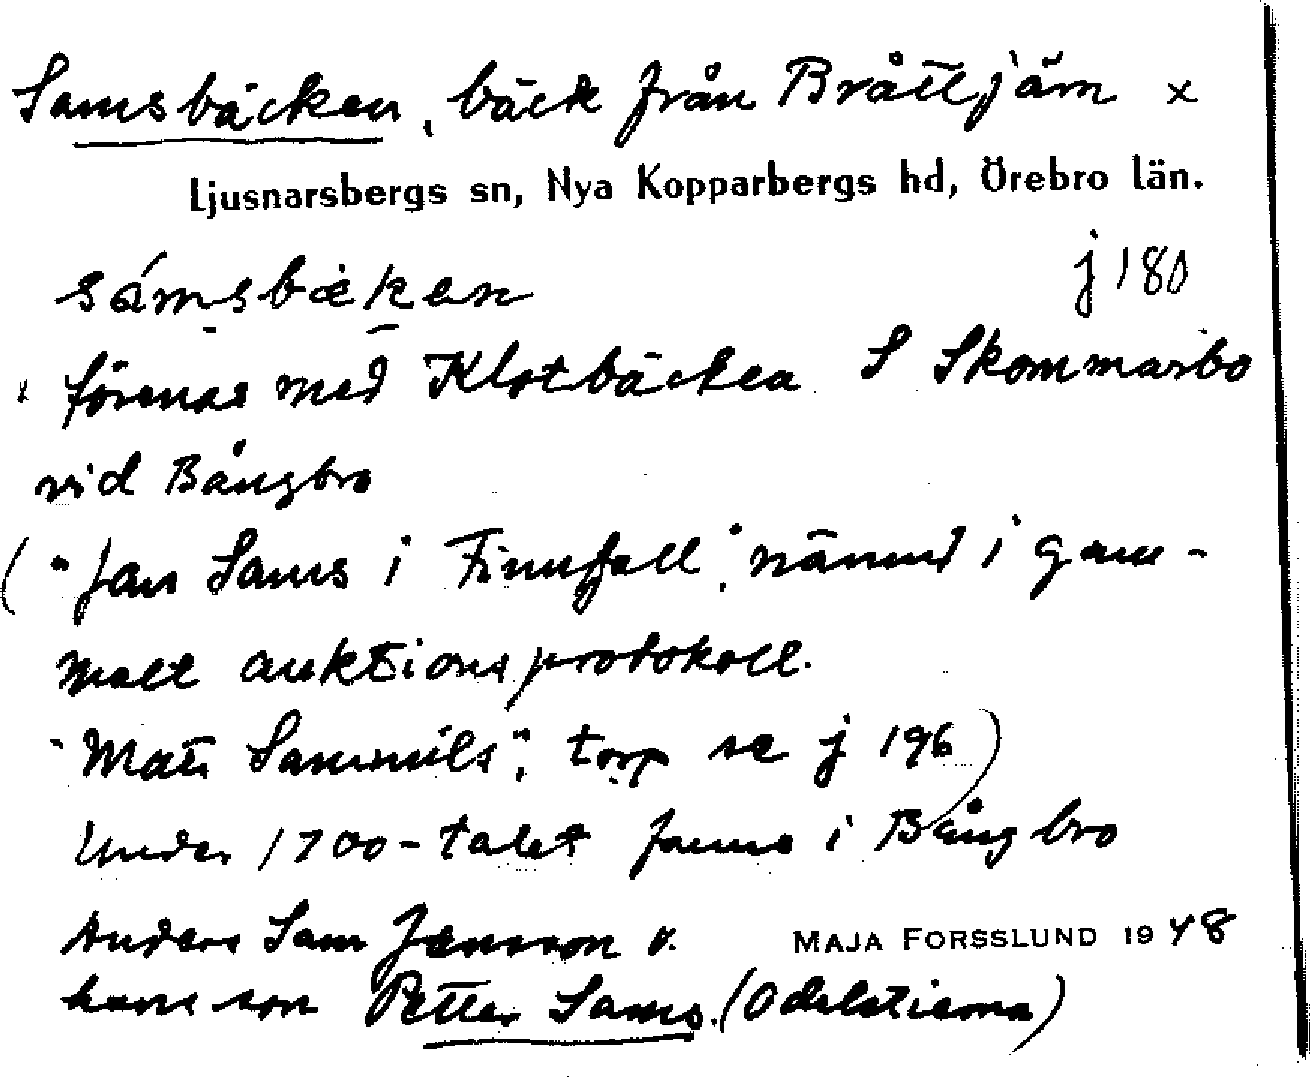 Samsbäcken, bäck från Bråttjärn x
Ljusnarsbergs sn, Nya Kopparbergs hd, Örebro län.
sámsbæken j 180
x förenas med Klotbäcken S Skommarbo
vid Bångbro
("Jan Sams i Finnfall", nämnd i gam-
malt auktionsprotokoll.
"Mats Sammils", torp se j 196)
Under 1700-talet fanns i Bångbro
Anders Sam Jansson o. MAJA FORSSLUND 1948
hans son Petter Sams. (Odelstierna)